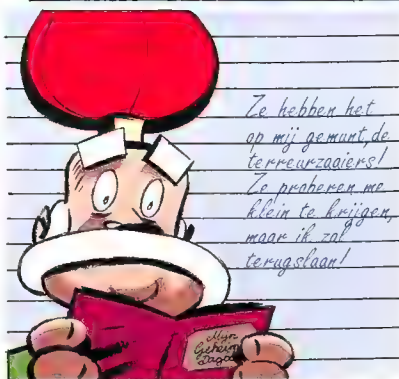 Ze hebben het
op mij gemunt, de
terreurzaaiers!
Ze proberen me
klein te krijgen,
maar ik zal
terugslaan!
Mijn
Geheim
Dagboek